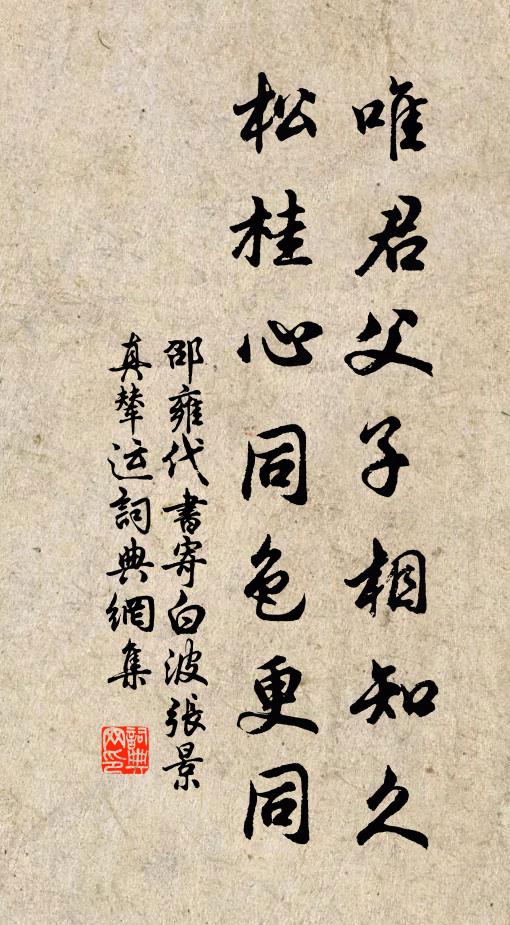 唯君父子相知久
松桂心同色更同
邵雍代書寄白波張景
真輦运詞典網集
詞典网印